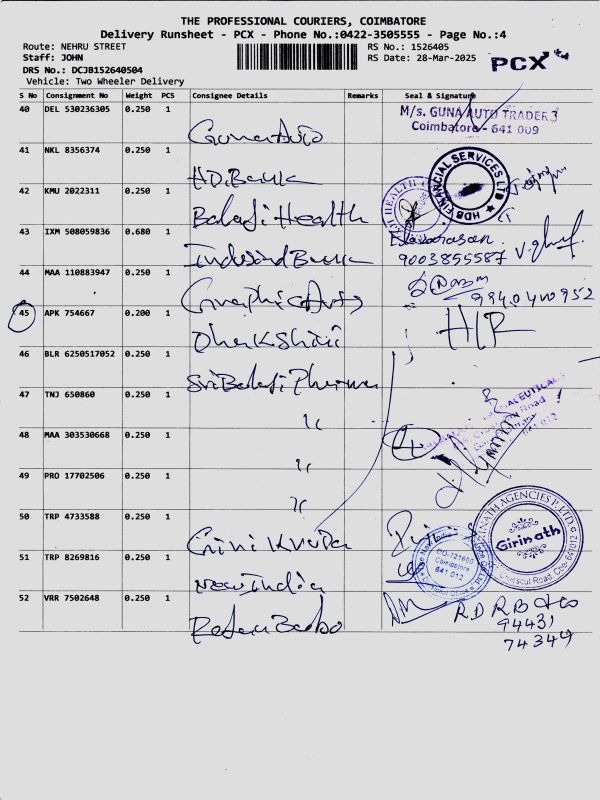 THE PROFESSIONAL COURIERS, COIMBATORE
Delivery Runsheet - PCX - Phone No.:0422-3505555 - Page No.:4
Route: NEHRU STREET
RS No.: 1526405
Staff: JOHN
RS Date: 28-Mar-2025
PCX
DRS No.: DCJB152640504
Vehicle: Two Wheeler Delivery
S No Consignment No Weight PCS Consignee Details Remarks Seal & Signature
40 DEL 530236305 0.250 1
M/s. GUNA AUTO TRADERS
Coimbatore - 641 009
Guna Auto
41 NKL 8356374 0.250 1
HDB FINANCIAL SERVICES LTD
HD.Bank
42 KMU 2022311 0.250 1
HEALTH
Balaji Health
43 IXM 508059836 0.680 1
Elavarasan
9003855587
IndusInd Bank
44 MAA 110883947 0.250 1
9940410952
Graphic Auto
45 APK 754667 0.200 1
Dhakshaii
46 BLR 6250517052 0.250 1
Sri Balaji Pharma
47 TNJ 650860 0.250 1
48 MAA 303530668 0.250 1
641 012
49 PRO 17702506 0.250 1
50 TRP 4733588 0.250 1
GIRINATH AGENCIES P LTD
Girinath
51 TRP 8269816 0.250 1
The New India
DO-721600
Coimbatore
641 012
New India
52 VRR 7502648 0.250 1
R.D R.B & Co
94431
74349